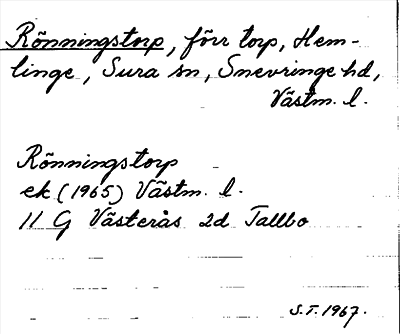 Rönningstorp, förr torp, Hem-
linge, Sura sn, Snevringe hd,
Västm. l.
Rönningstorp
ek (1965) Västm. l.
11 G Västerås 2d Tallbo
S.T. 1967.